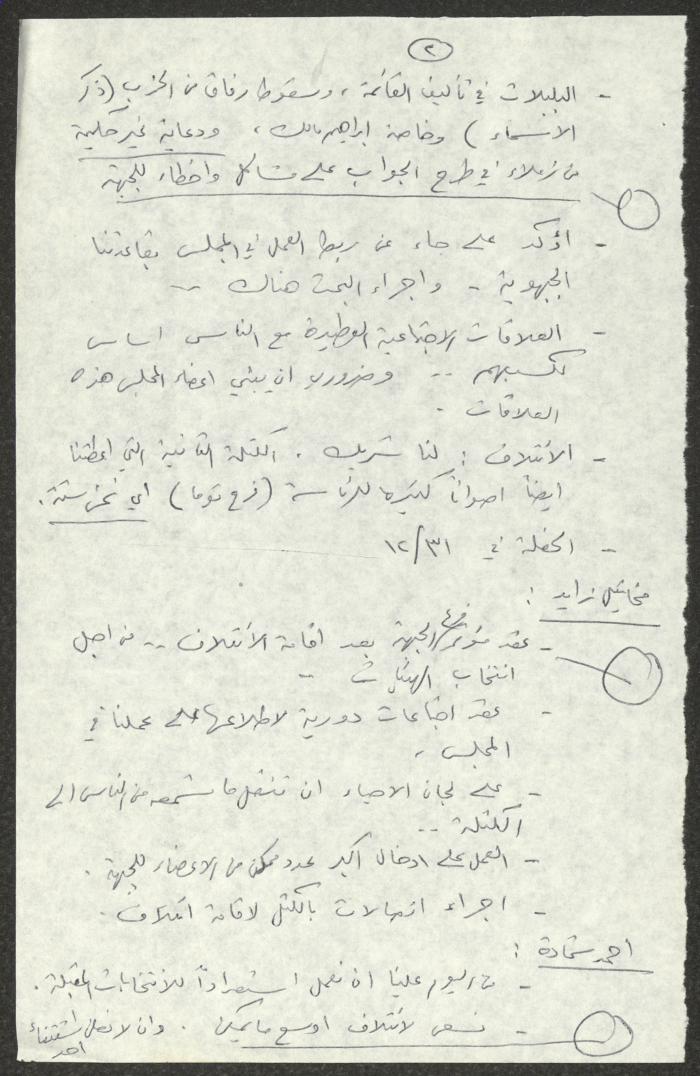 ٢
- البلبلات في تأليف القائمة، وسقوط رفاق من الحزب (ذكر
الاسماء) وخاصة ابراهيم مالك، ودعاية غير حكيمة
من زملاء في طرح الجواب على مشاكل واخطاء للجبهة
- اؤكد على جاء عن ربط العمل في المجلس بقاعدتنا
الجبهوية - واجراء البحث هناك --
- العلاقات الاجتماعية الوطيدة مع الناس اساس
لكسبهم -- وضروري ان يبني اعضاء المجلس هذه
العلاقات -
- الائتلاف : لنا شريك . الكتلة الثانية التي اعطتنا
ايضاً اصواتاً كثيرة للرئاسة (فرح توما) اي نحن ستة.
- الحفلة في ١٢/٣١
مخائيل زايد :
- عقد مؤتمر فرع الجبهة بعد اقامة الائتلاف -- من اجل
انتخاب الهيئات --
- عقد اجتماعات دورية لاطلاعها على عملنا في
المجلس .
- على لجان الاحياء ان تنقل ما تسمعه من الناس الى
الكتلة --
- العمل على ادخال اكبر عدد ممكن من الاعضاء للجبهة .
- اجراء اتصالات بالكتل لاقامة ائتلاف .
احمد شحادة :
- من اليوم علينا ان نعمل استعداداً للانتخابات المقبلة .
- نسعى لائتلاف اوسع ما يمكن . وان لا نعلن استثناء
احد